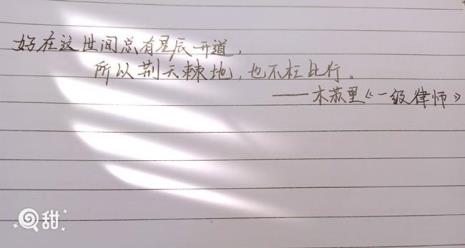 好在这世间总有星辰开道，
所以荆天棘地，也不枉此行。
——木苏里《一级律师》
甜